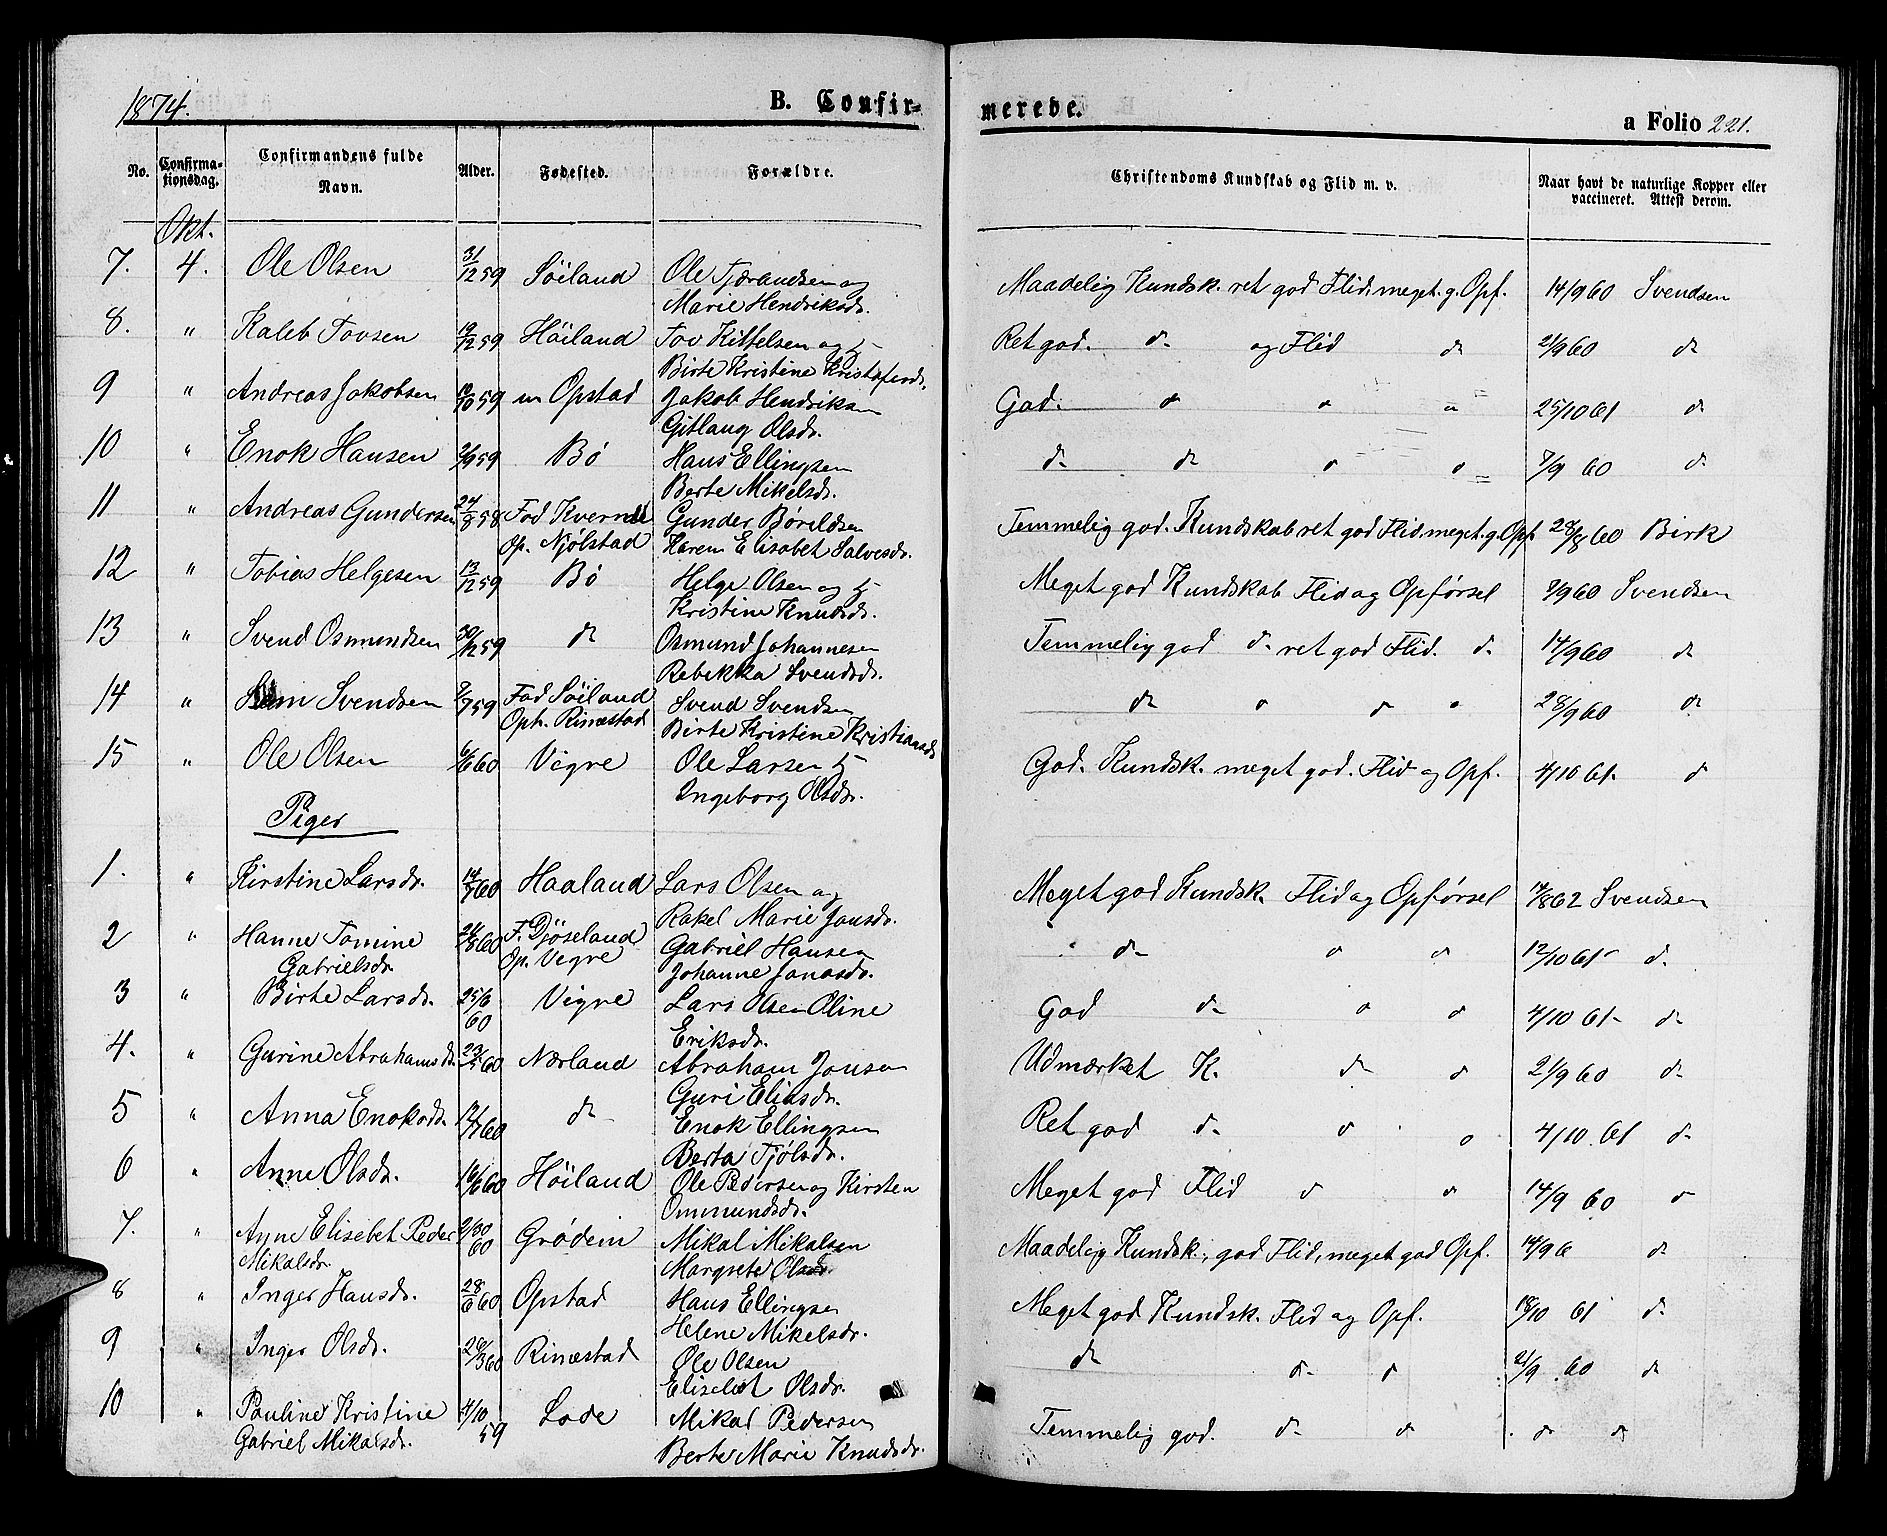 1874.
B. Confir-
merede.
a Folio 221.
No.
Confirma-
tionsdag.
Confirmandens fulde
Navn.
Alder.
Fødested.
Forældre.
Christendoms Kundskab og Flid m. v.
Naar havt de naturlige Kopper eller
vaccineret. Attest derom.
Okt.
7. 4. Ole Olsen 31/12 59 Söiland Ole Tjærandsen og Maadelig Kundsk. ret god Flid, meget. g. Opf. 14/9 60 Svendsen
Marie Hendriksdr.
8. " Kaleb Tovsen 19/12 59 Höiland Tov Kittelsen og Ret god. do og Flid do 2/9 60 do
Birte Kristine Kristofersdr.
9 " Andreas Jakobsen 59 Opstad Jakob Hendriksen God. do do " 25/10 61 do
Gitlaug Olsdr.
10 " Enok Hansen 2/9 59 Bö Hans Ellingsen do do do do 7/9 60 do
Berte Mikelsdr.
11 " Andreas Gundersen 24/8 58 Fød Kvernel Gunder Böreldsen Temmelig god. Kundskab ret god Flid, meget. g. Opf 28/8 60 Birk
Op. Njölstad Karen Elisabet Salvesdr.
12 " Tobias Helgesen 13/12 59 Bö Helge Olsen og Meget god Kundskab Flid og Opførsel 7/9 60 Svendsen
Kristine Knudsdr.
13 " Svend Osmundsen 30/12 59 do Osmund Johannesen Temmelig god do ret god Flid. do 14/9 60 do
Rebekka Svendsdr.
14 " Svendsen 59 Fød Söiland Svend Svendsen do do do " 28/9 60 do
Oph. Rinæstad Birte Kristine Kristiansdr
15 " Ole Olsen 6/6 60 Vigre Ole Larsen God. Kundsk. meget god. Flid og Opf. 4/10 61. do
Ingeborg Olsdr.
Piger
1. " Kirstine Larsdr. 60 Haaland Lars Olsen og Meget god Kundsk. Flid og Opførsel 62 Svendsen
Rakel Marie Jansdr.
2 " Hanne Tomine 60 F. Djöseland Gabriel Hansen do do do 12/10 61 do
Gabrielsdr. Op. Vegre Johanne Jonasdr.
3 " Birte Larsdr. 25/6 Vigre Lars Olsen Oline God do do do 4/10 61 do
60 Eriksdr.
4. " Gurine Abrahamsdr. 60 Nærland Abraham Jonsen Udmærket K. do do 2/9 60 do
Guri Eliasdr.
5 " Anna Enoksdr. 60 do Enok Ellingsen Ret god do do do 4/10 61 do
Berta Tjölsdr.
6 " Anne Olsdr. 60 Höiland Ole Pedersen og Kirsten Meget god Flid do do 14/9 60 do
Ommundsdr.
7. " Anne Elisebet Peder Grödem Mikal Mikalsen Maadelig Kundsk., god Flid, meget god Opf. 14/9 6 do
Mikalsdr. 60 Margrete Olsdr.
8 " Inger Hansdr. 28/6 60 Opstad Hans Ellingsen Meget god Kundsk. Flid og Opf. 18/10 61 do
Helene Mikelsdr.
9 " Inger Olsdr. 60 Rinæstad Ole Olsen do do do 2/9 60 do
Elisebet Olsdr.
10 " Pauline Kristine 4/10 Lode Mikal Pedersen Temmelig god. do do do do
Gabriel Mikalsdr. 59 Berte Marie Knudsdr.